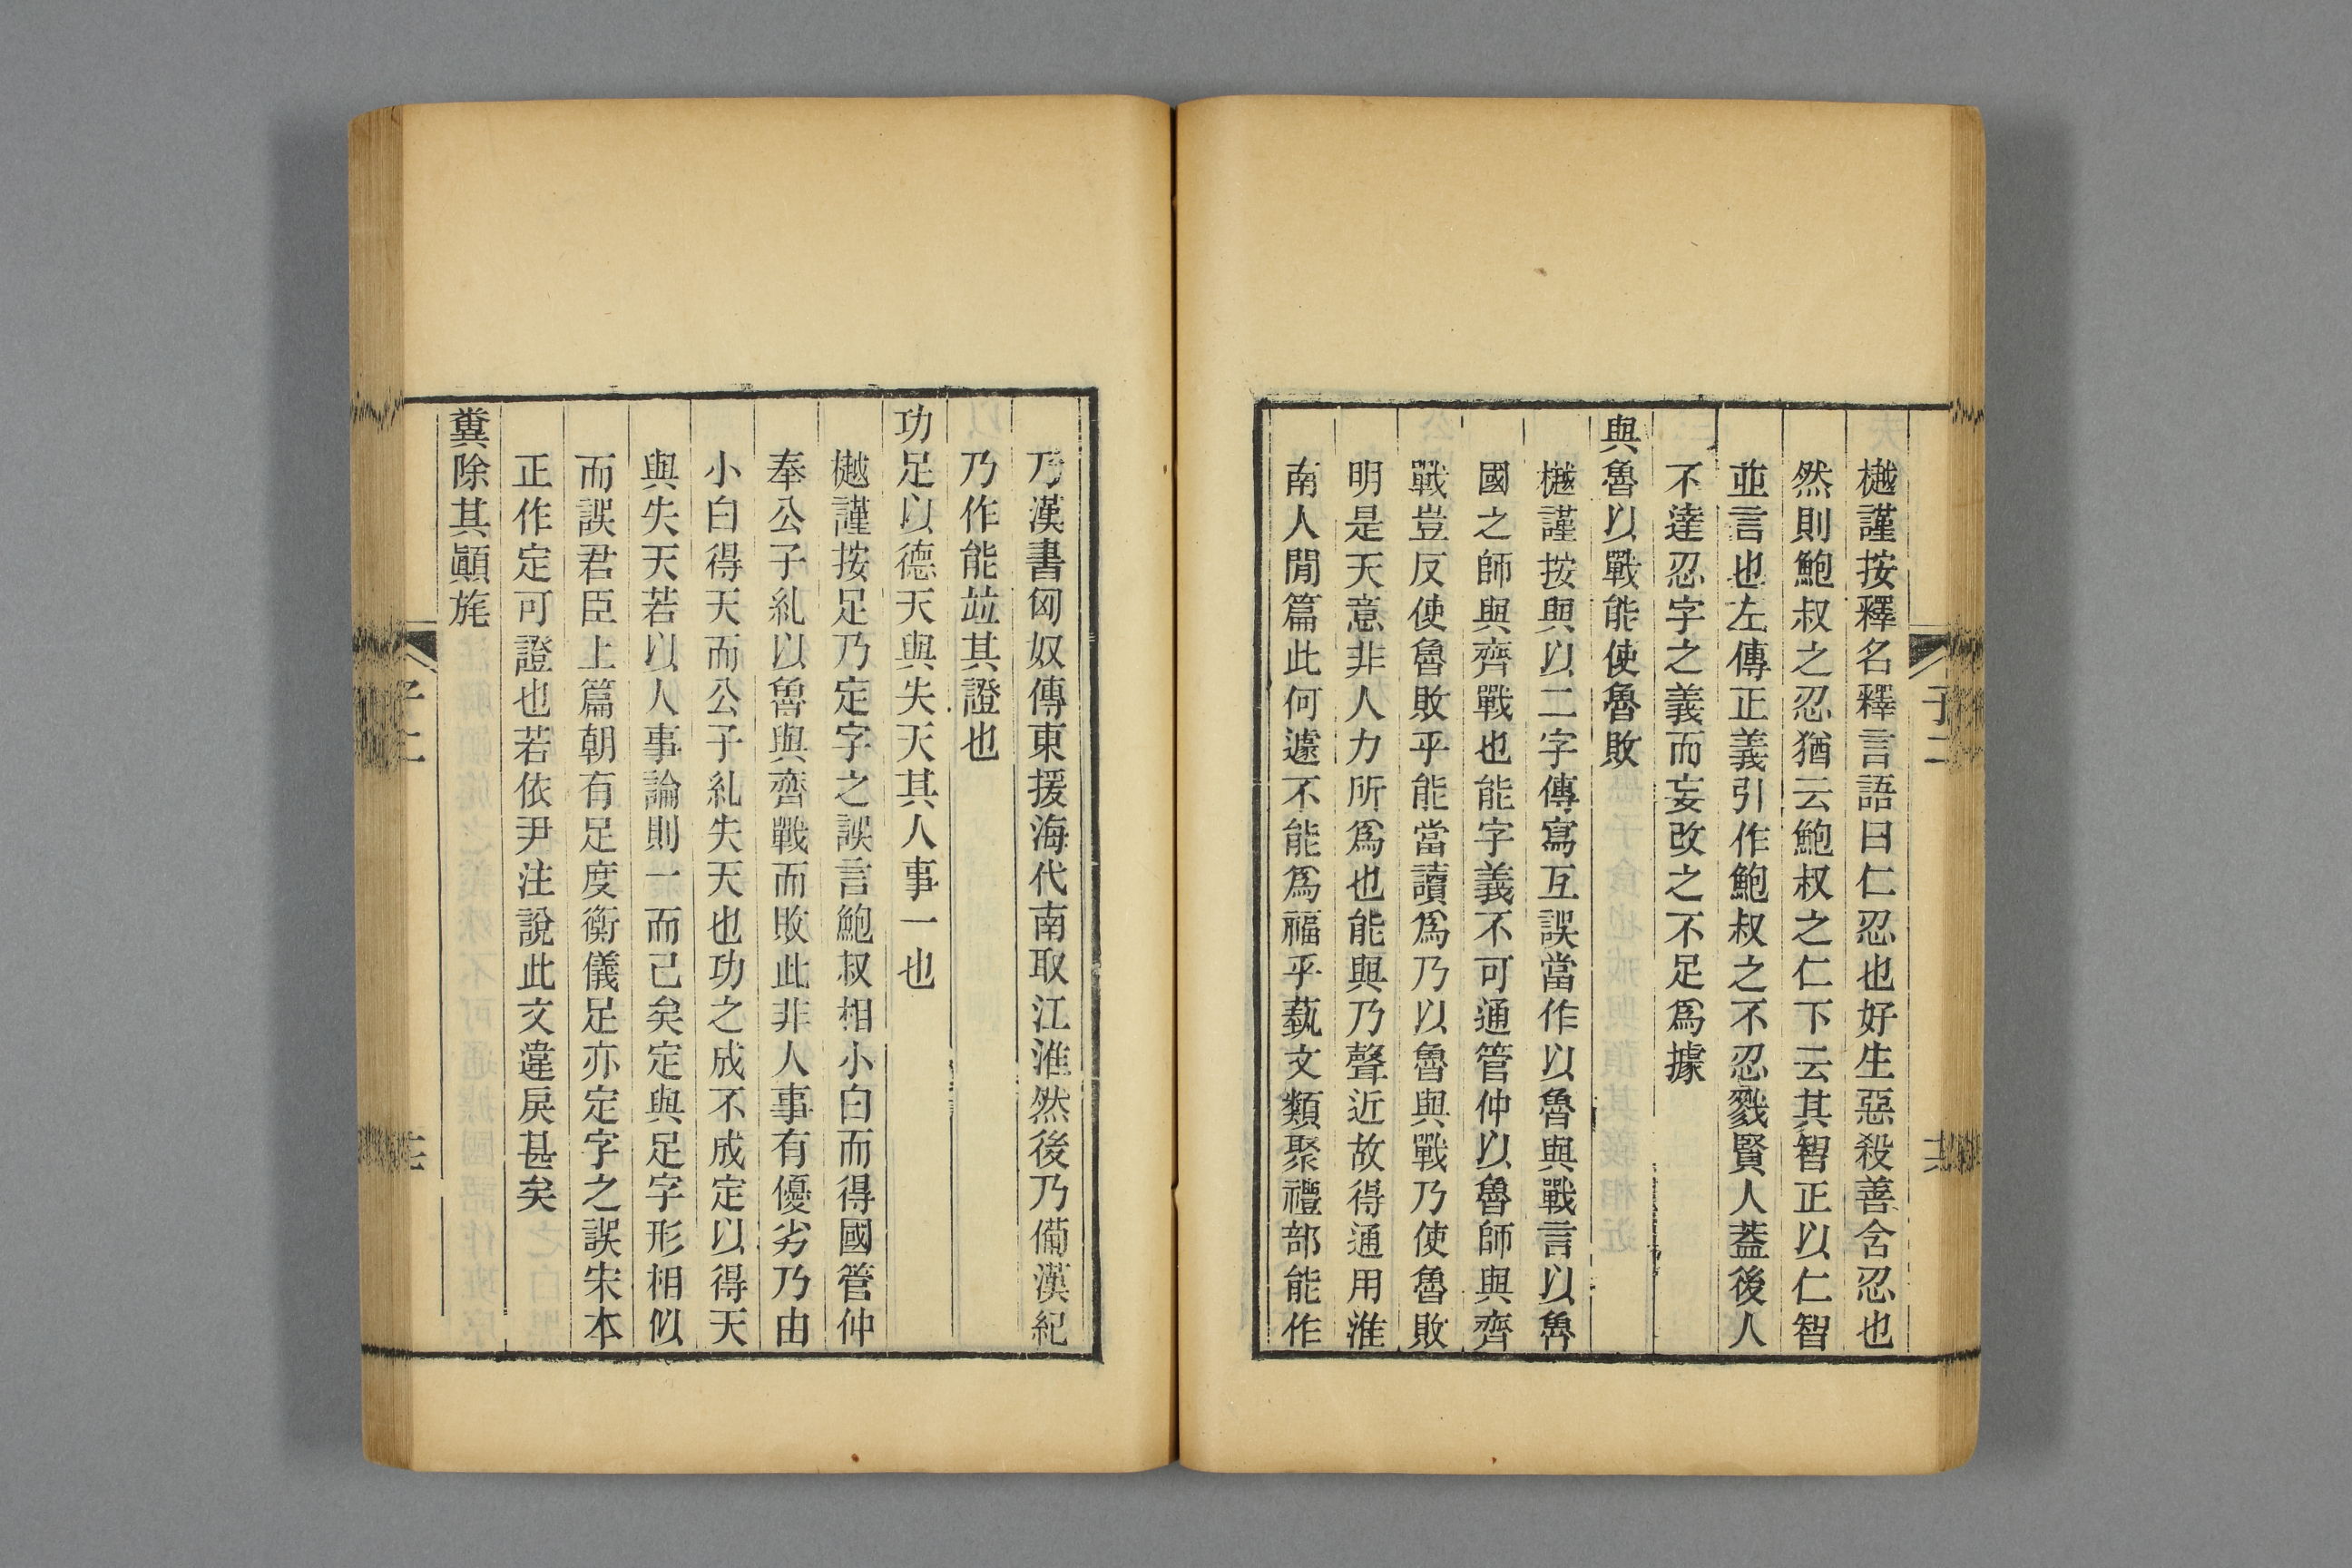 樾謹按釋名釋言語曰仁忍也好生惡殺善含忍也
然則鮑叔之忍猶云鮑叔之仁下云其智正以仁智
並言也左傳正義引作鮑叔之不忍戮賢人蓋後人
不達忍字之義而妄改之不足爲據
與魯以戰能使魯敗
樾謹按與以二字傳寫互誤當作以魯與戰言以魯
國之師與齊戰也能字義不可通管仲以魯師與齊
戰豈反使魯敗乎能當讀爲乃以魯與戰乃使魯敗
明是天意非人力所爲也能與乃聲近故得通用淮
南人閒篇此何遽不能爲福乎蓺文類聚禮部能作
乃漢書匈奴傳東援海代南取江淮然後乃僃漢紀
乃作能竝其證也
功足以德天與失天其人事一也
樾謹按足乃定字之誤言鮑叔相小白而得國管仲
奉公子糺以魯與齊戰而敗此非人事有優劣乃由
小白得天而公子糺失天也功之成不成定以得天
與失天若以人事論則一而已矣定與足字形相似
而誤君臣上篇朝有足度衡儀足亦定字之誤宋本
正作定可證也若依尹注說此文違戾甚矣
糞除其顚旄
子二